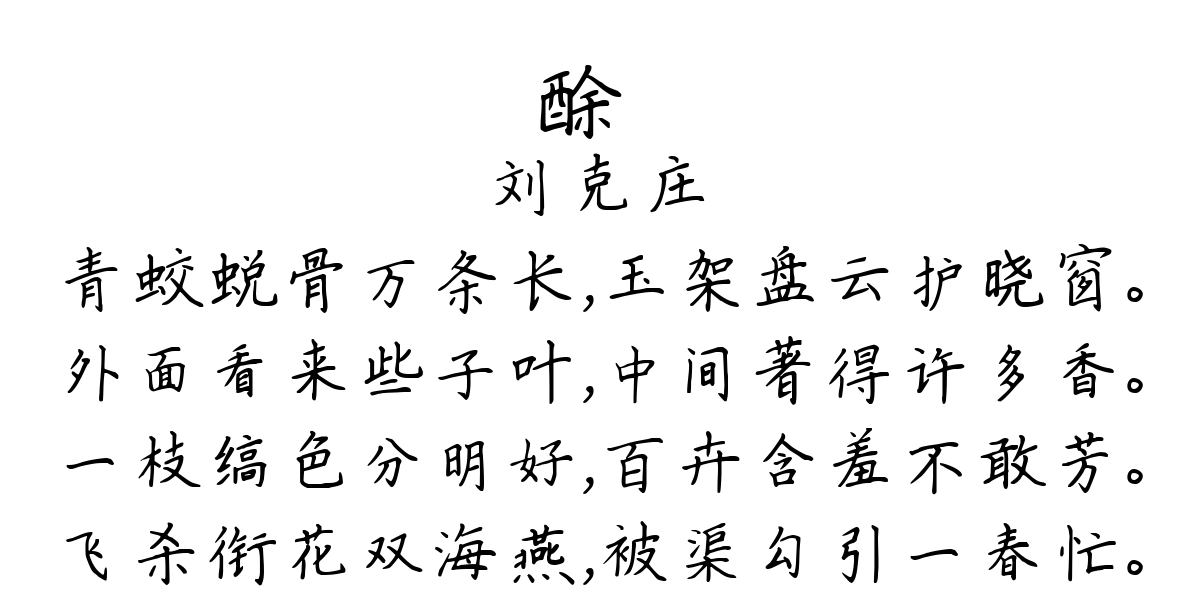 酴
刘克庄
青蛟蜕骨万条长,玉架盘云护晓窗。
外面看来些子叶,中间著得许多香。
一枝缟色分明好,百卉含羞不敢芳。
飞杀衔花双海燕,被渠勾引一春忙。